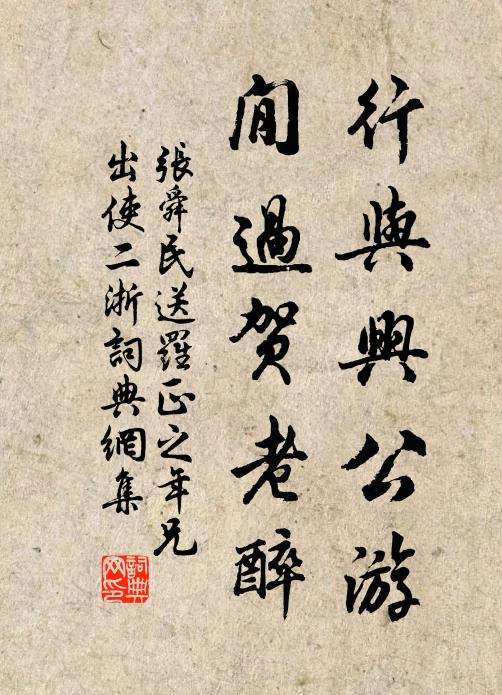 行與興公游
閒過賀老醉
張舜民送羅正之年兄
出使二浙詞典網集
詞典網印